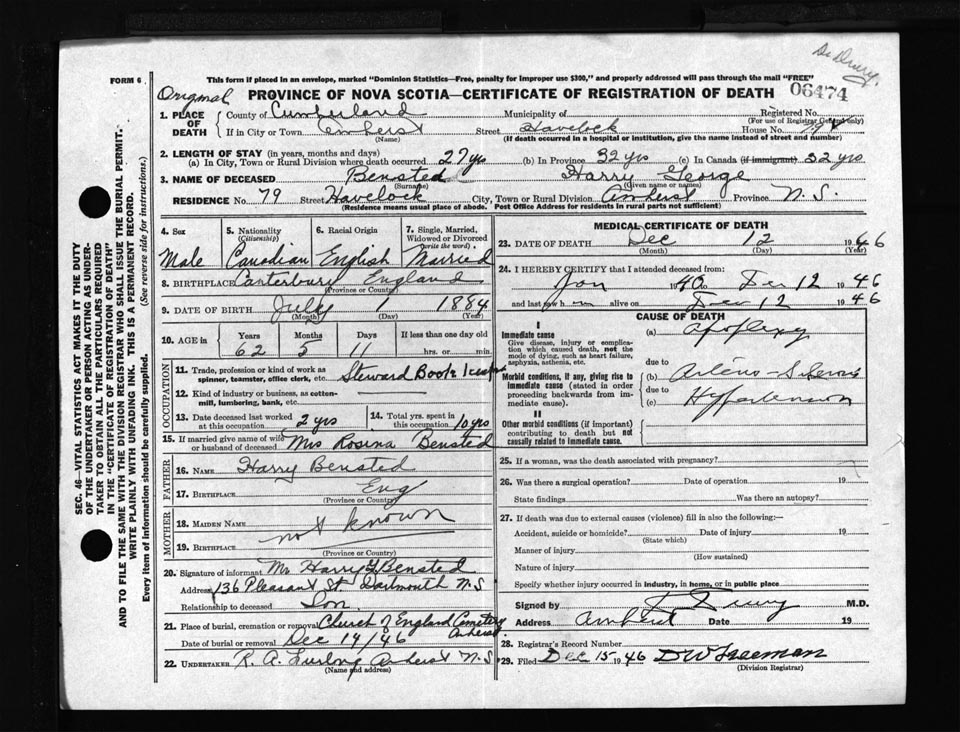 Dr Drury.
FORM 6
This form if placed in an envelope, marked "Dominion Statistics—Free, penalty for improper use $300," and properly addressed will pass through the mail "FREE"
Original
PROVINCE OF NOVA SCOTIA—CERTIFICATE OF REGISTRATION OF DEATH
06474
1. PLACE OF DEATH
County of Cumberland Municipality of Registered No.
(For use of Registrar General only)
If in City or Town Amherst Street Havelock House No. 79
(Name) (If death occurred in a hospital or institution, give the name instead of street and number)
2. LENGTH OF STAY (in years, months and days)
(a) In City, Town or Rural Division where death occurred 27 yrs (b) In Province 32 yrs (c) In Canada (if immigrant) 32 yrs
3. NAME OF DECEASED Bensted Harry George
(Surname) (Given name or names)
RESIDENCE No. 79 Street Havelock City, Town or Rural Division Amherst Province N.S.
(Residence means usual place of abode. Post Office Address for residents in rural parts not sufficient)
4. Sex 5. Nationality (Citizenship) 6. Racial Origin 7. Single, Married, Widowed or Divorced (write the word)
Male Canadian English Married
8. BIRTHPLACE Canterbury England
(Province or Country)
9. DATE OF BIRTH July 1 1884
(Month) (Day) (Year)
10. AGE in Years Months Days If less than one day old
62 5 11 hrs. or min.
OCCUPATION
11. Trade, profession or kind of work as spinner, teamster, office clerk, etc. Steward Book keeper
12. Kind of industry or business, as cotton-mill, lumbering, bank, etc.
13. Date deceased last worked at this occupation 2 yrs 14. Total yrs. spent in this occupation 10 yrs
15. If married give name of wife or husband of deceased Mrs Rosina Bensted
FATHER
16. NAME Harry Bensted
17. BIRTHPLACE Eng
(Province or Country)
MOTHER
18. MAIDEN NAME not known
19. BIRTHPLACE
(Province or Country)
20. Signature of informant Mr Harry G Bensted
Address 136 Pleasant St. Dartmouth N.S
Relationship to deceased Son
21. Place of burial, cremation or removal Church of England Cemetery Amherst
Date of burial or removal Dec 14/46
22. UNDERTAKER R. A. Furlong Amherst N.S
(Name and address)
MEDICAL CERTIFICATE OF DEATH
23. DATE OF DEATH Dec 12 1946
(Month) (Day) (Year)
24. I HEREBY CERTIFY that I attended deceased from:
Jan 1940 to Dec 12 1946
and last saw h m alive on Dec 12 1946
CAUSE OF DEATH
I
Immediate cause
Give disease, injury or complication which caused death, not the mode of dying, such as heart failure, asphyxia, asthenia, etc.
(a) Apoplexy
due to
Morbid conditions, if any, giving rise to immediate cause (stated in order proceeding backwards from immediate cause).
(b) Arterio-Sclerosis
due to
(c) Hypertension
II
Other morbid conditions (if important) contributing to death but not causally related to immediate cause.
25. If a woman, was the death associated with pregnancy?
26. Was there a surgical operation? Date of operation 19
State findings Was there an autopsy?
27. If death was due to external causes (violence) fill in also the following:—
Accident, suicide or homicide? Date of injury 19
(State which)
Manner of injury
(How sustained)
Nature of injury
Specify whether injury occurred in industry, in home, or in public place
Signed by Drury M.D.
Address Amherst Date 19
28. Registrar's Record Number
29. Filed Dec 15 1946 DW Freeman
(Division Registrar)
SEC. 46—VITAL STATISTICS ACT MAKES IT THE DUTY
OF THE UNDERTAKER OR PERSON ACTING AS UNDER-
TAKER TO OBTAIN ALL THE PARTICULARS REQUIRED
IN THE "CERTIFICATE OF REGISTRATION OF DEATH"
AND TO FILE THE SAME WITH THE DIVISION REGISTRAR WHO SHALL ISSUE THE BURIAL PERMIT.
WRITE PLAINLY WITH UNFADING INK. THIS IS A PERMANENT RECORD.
Every item of information should be carefully supplied. (See reverse side for instructions.)